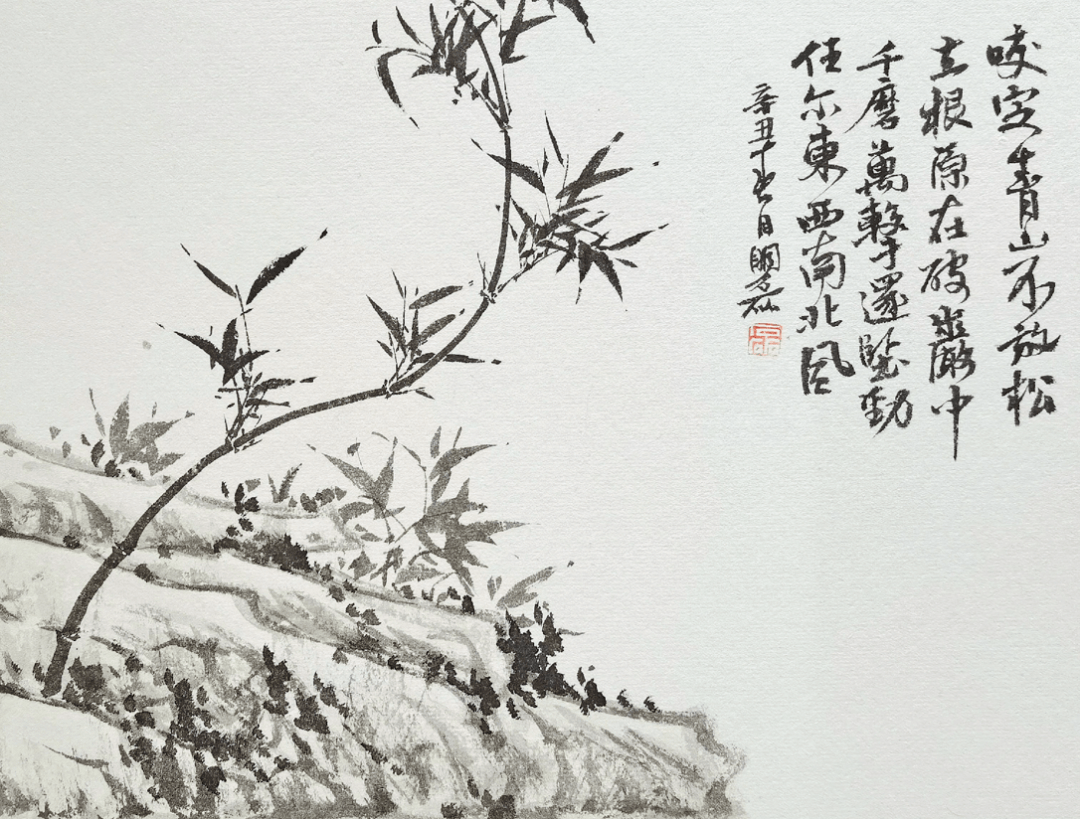 咬定青山不放松
立根原在破巖中
千磨萬擊還堅勁
任尔東西南北風
辛丑十月